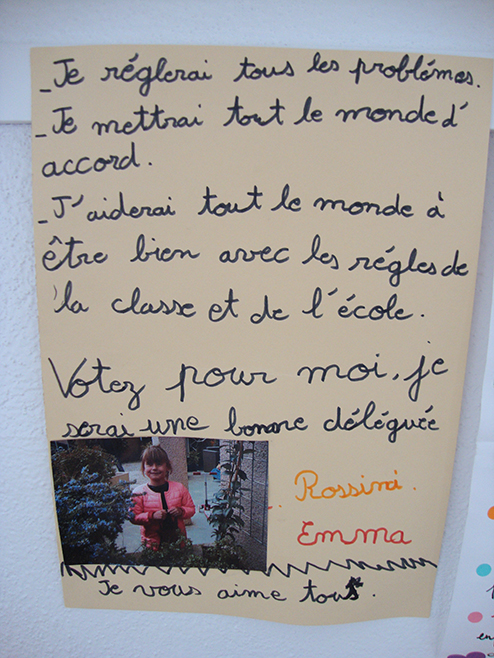 _Je réglerai tous les problémes.
_Je mettrai tout le monde d'
accord.
_J'aiderai tout le monde à
être bien avec les régles de
la classe et de l'école.
Votez pour moi, je
serai une bonne déléguée
Rossini.
Emma
Je vous aime tous.